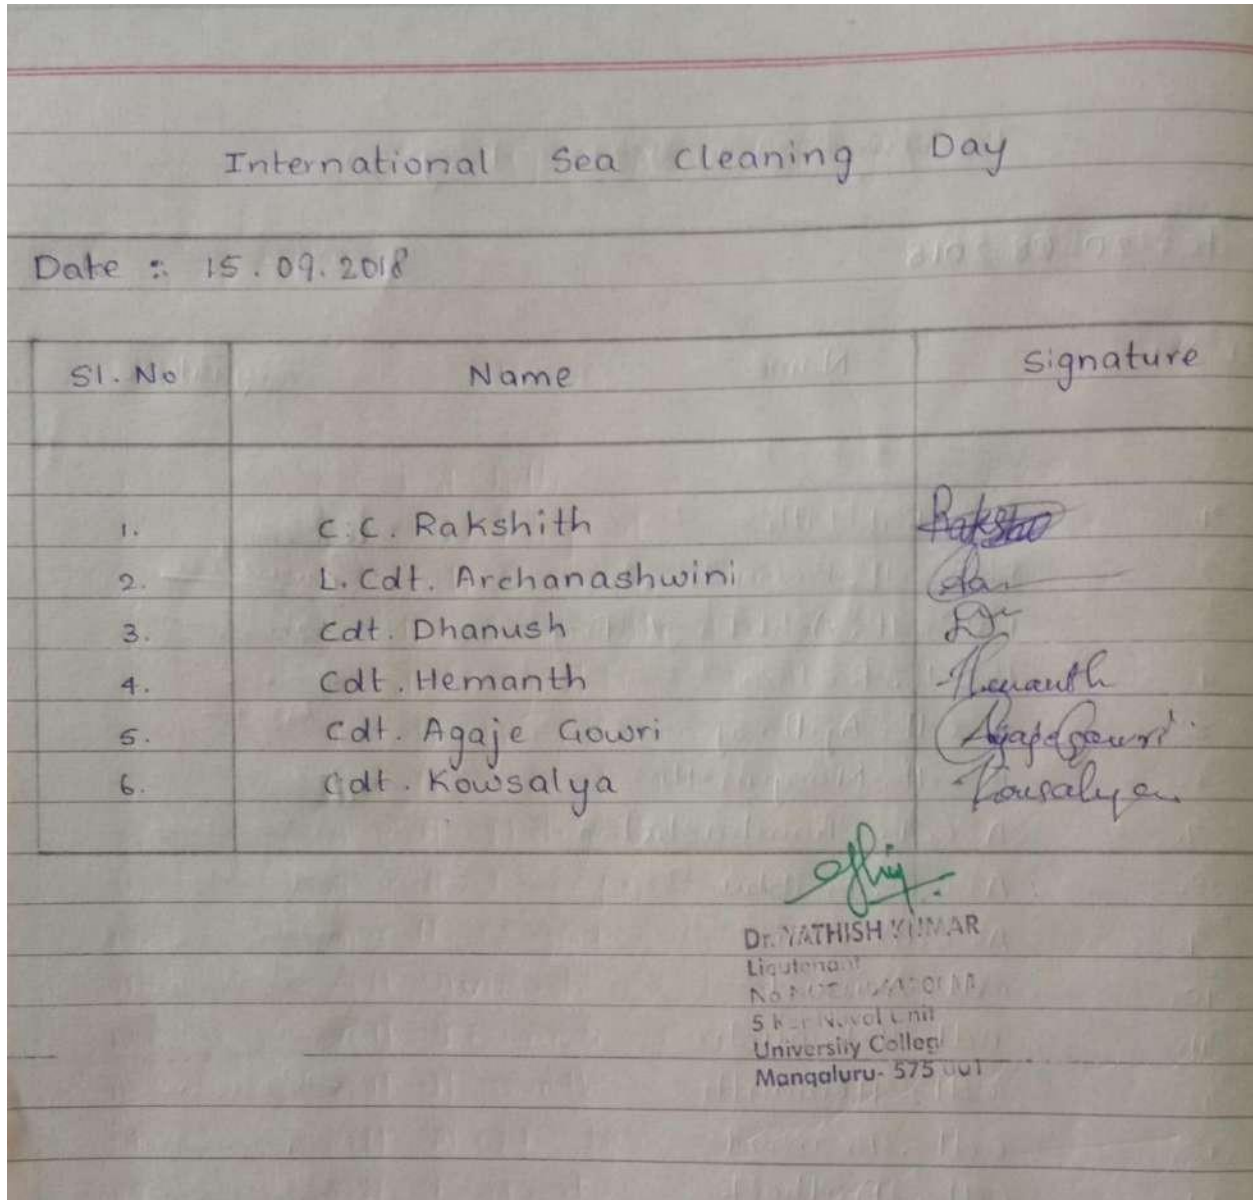 International Sea Cleaning Day
Date : 15.09.2018
Sl. No Name Signature
1. C.C. Rakshith
2. L. Cdt. Archanashwini
3. Cdt. Dhanush
4. Cdt. Hemanth Hemanth
5. Cdt. Agaje Gowri Agaje Gowri
6. Cdt. Kowsalya Kousalya
Dr. YATHISH KUMAR
Lieutenant
No
5 Kar Naval Unit
University College
Mangaluru- 575 001